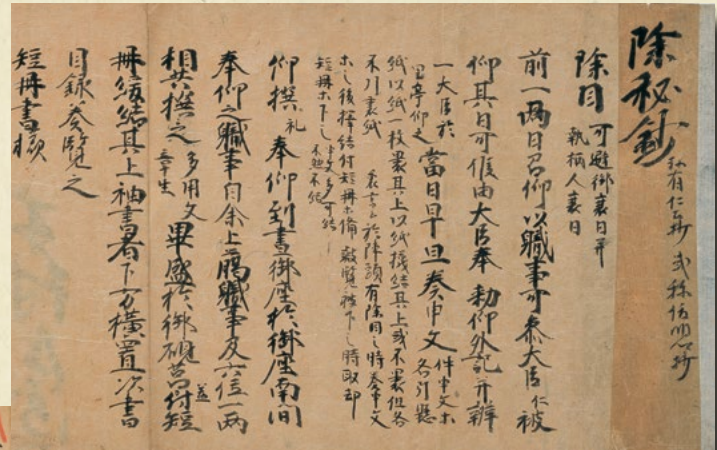 除秘鈔
除目 可避御衰日并
執柄人衰日
前一両日召仰以職事可参大臣仁被
仰其日可候由大臣奉勅仰外記并辨
一大臣於
里亭仰之
當日早旦奏申文 件申文
各引懸
紙以紙一枚裹其上以紙捻結其上或不裹但各
不引裹紙 於陣頭有除目之時奏申文
之後 結付短冊 備叡覧被下之時取却
短冊 下之
仰撰 礼 奉仰到晝御座於御座南間
奉仰之職事自余上臈職事及六位一両
相共撰之 多用文
章生 畢盛於御硯筥 蓋 付短
冊 結其上袖書者下方横置次書
目録奏覧之
短冊書様